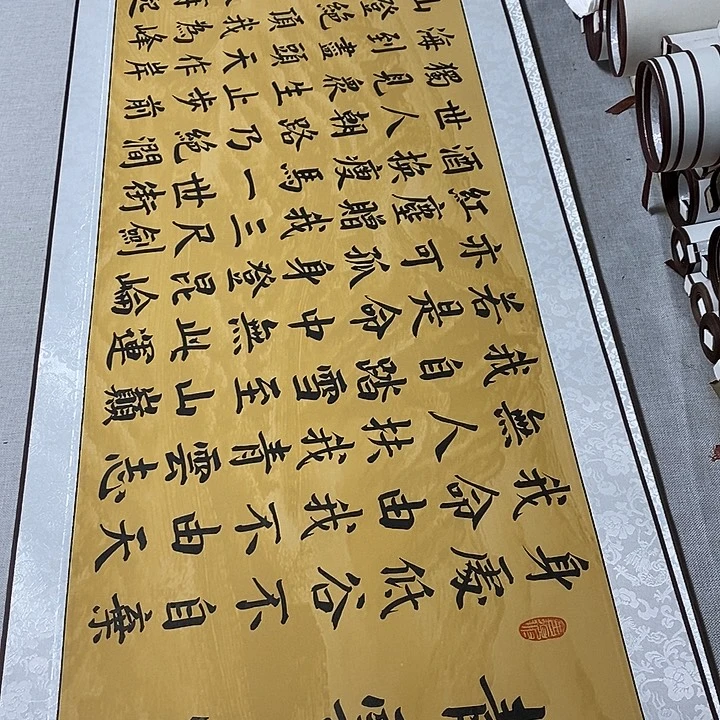 身處低谷不自棄
我命由我不由天
無人扶我青雲志
我自踏雪至山巔
若是命中無此運
亦可孤身登昆崙
紅塵贈我三尺劍
酒換瘦馬一世街
世人朝路乃絕澗
獨見眾生止步前
海到盡頭天作岸
山登絕頂我為峰